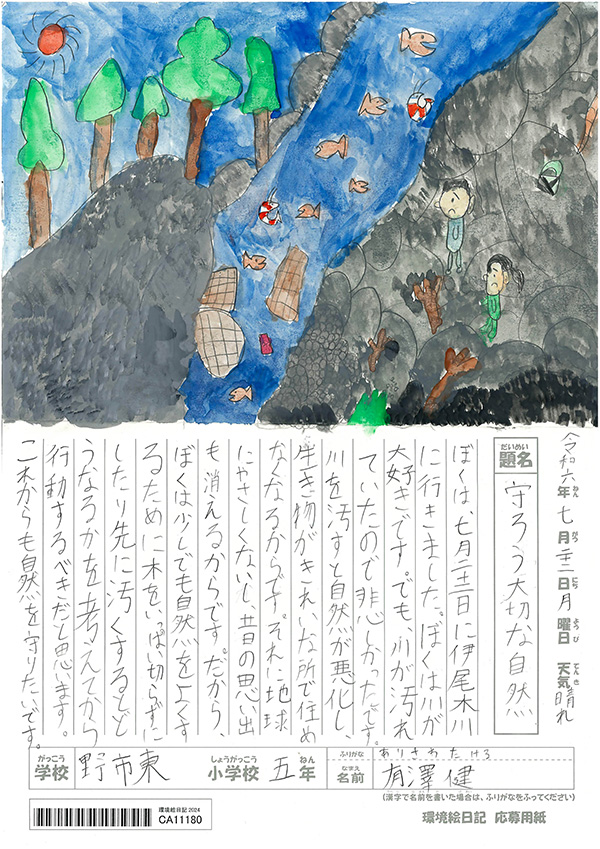 令和六年七月二十二日月曜日 天気晴れ
ねん がつ にち ようび てんき
だいめい
題名 守ろう大切な自然
ぼくは、七月二十二日に伊尾木川
に行きました。ぼくは川が
大好きです。でも、川が汚れ
ていたので悲しかったです。
川を汚すと自然が悪化し、
生き物がきれいな所で住め
なくなるからです。それに地球
にやさしくないし、昔の思い出
も消えるからです。だから、
ぼくは少しでも自然をよくす
るために木をいっぱい切らずに
したり先に汚くするとど
うなるかを考えてから
行動するべきだと思います。
これからも自然を守りたいです。
がっこう しょうがっこう ねん ふりがな ありさわたける
学校 野市東 小学校 五年 なまえ 名前 有澤健
(漢字で名前を書いた場合は、ふりがなをふってください)
環境絵日記2024
CA11180
環境絵日記 応募用紙